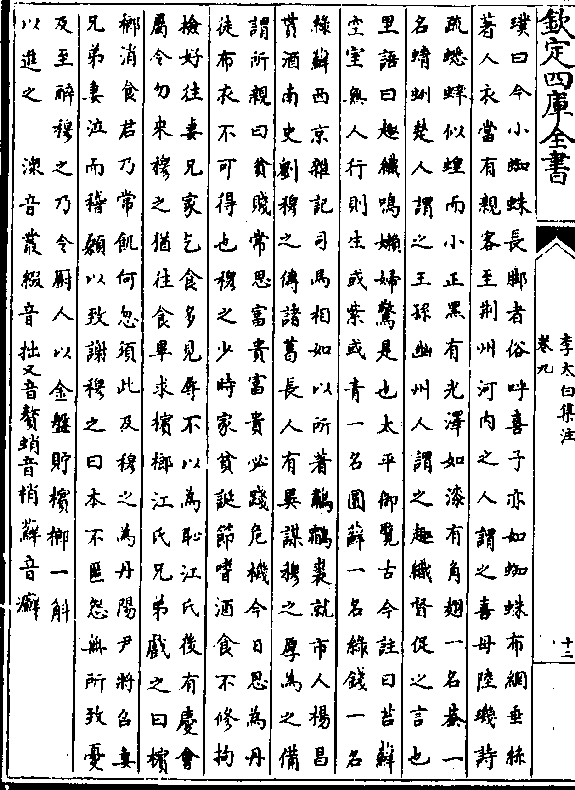 欽定四庫全書
李太白集注
卷九
十二
璞曰今小蜘蛛長脚者俗呼喜子亦如蜘蛛布網垂絲
著人衣當有親客至荆州河内之人謂之喜母陸璣詩
疏蟋蟀似蝗而小正黑有光澤如漆有角翅一名蛬一
名蜻蛚楚人謂之王孫幽州人謂之趣織督促之言也
里語曰趣織鳴嬾婦驚是也太平御覽古今註曰苔蘚
空室無人行則生或紫或青一名圓蘚一名綠錢一名
綠蘚西京雜記司馬相如以所著鷫鸘裘就市人楊昌
貰酒南史劉穆之傳諸葛長人有異謀穆之厚為之備
謂所親曰貧賤常思富貴富貴必踐危機今日思為丹
徒布衣不可得也穆之少時家貧誕節嗜酒食不修拘
檢好往妻兄家乞食多見辱不以為恥江氏後有慶會
屬令勿來穆之猶往食畢求檳榔江氏兄弟戲之曰檳
榔消食君乃常飢何忽須此及穆之為丹陽尹將召妻
兄弟妻泣而稽顙以致謝穆之曰本不匿怨無所致憂
及至醉穆之乃令厨人以金盤貯檳榔一斛
以進之　潨音叢綴音拙又音贅蛸音梢蘚音癬